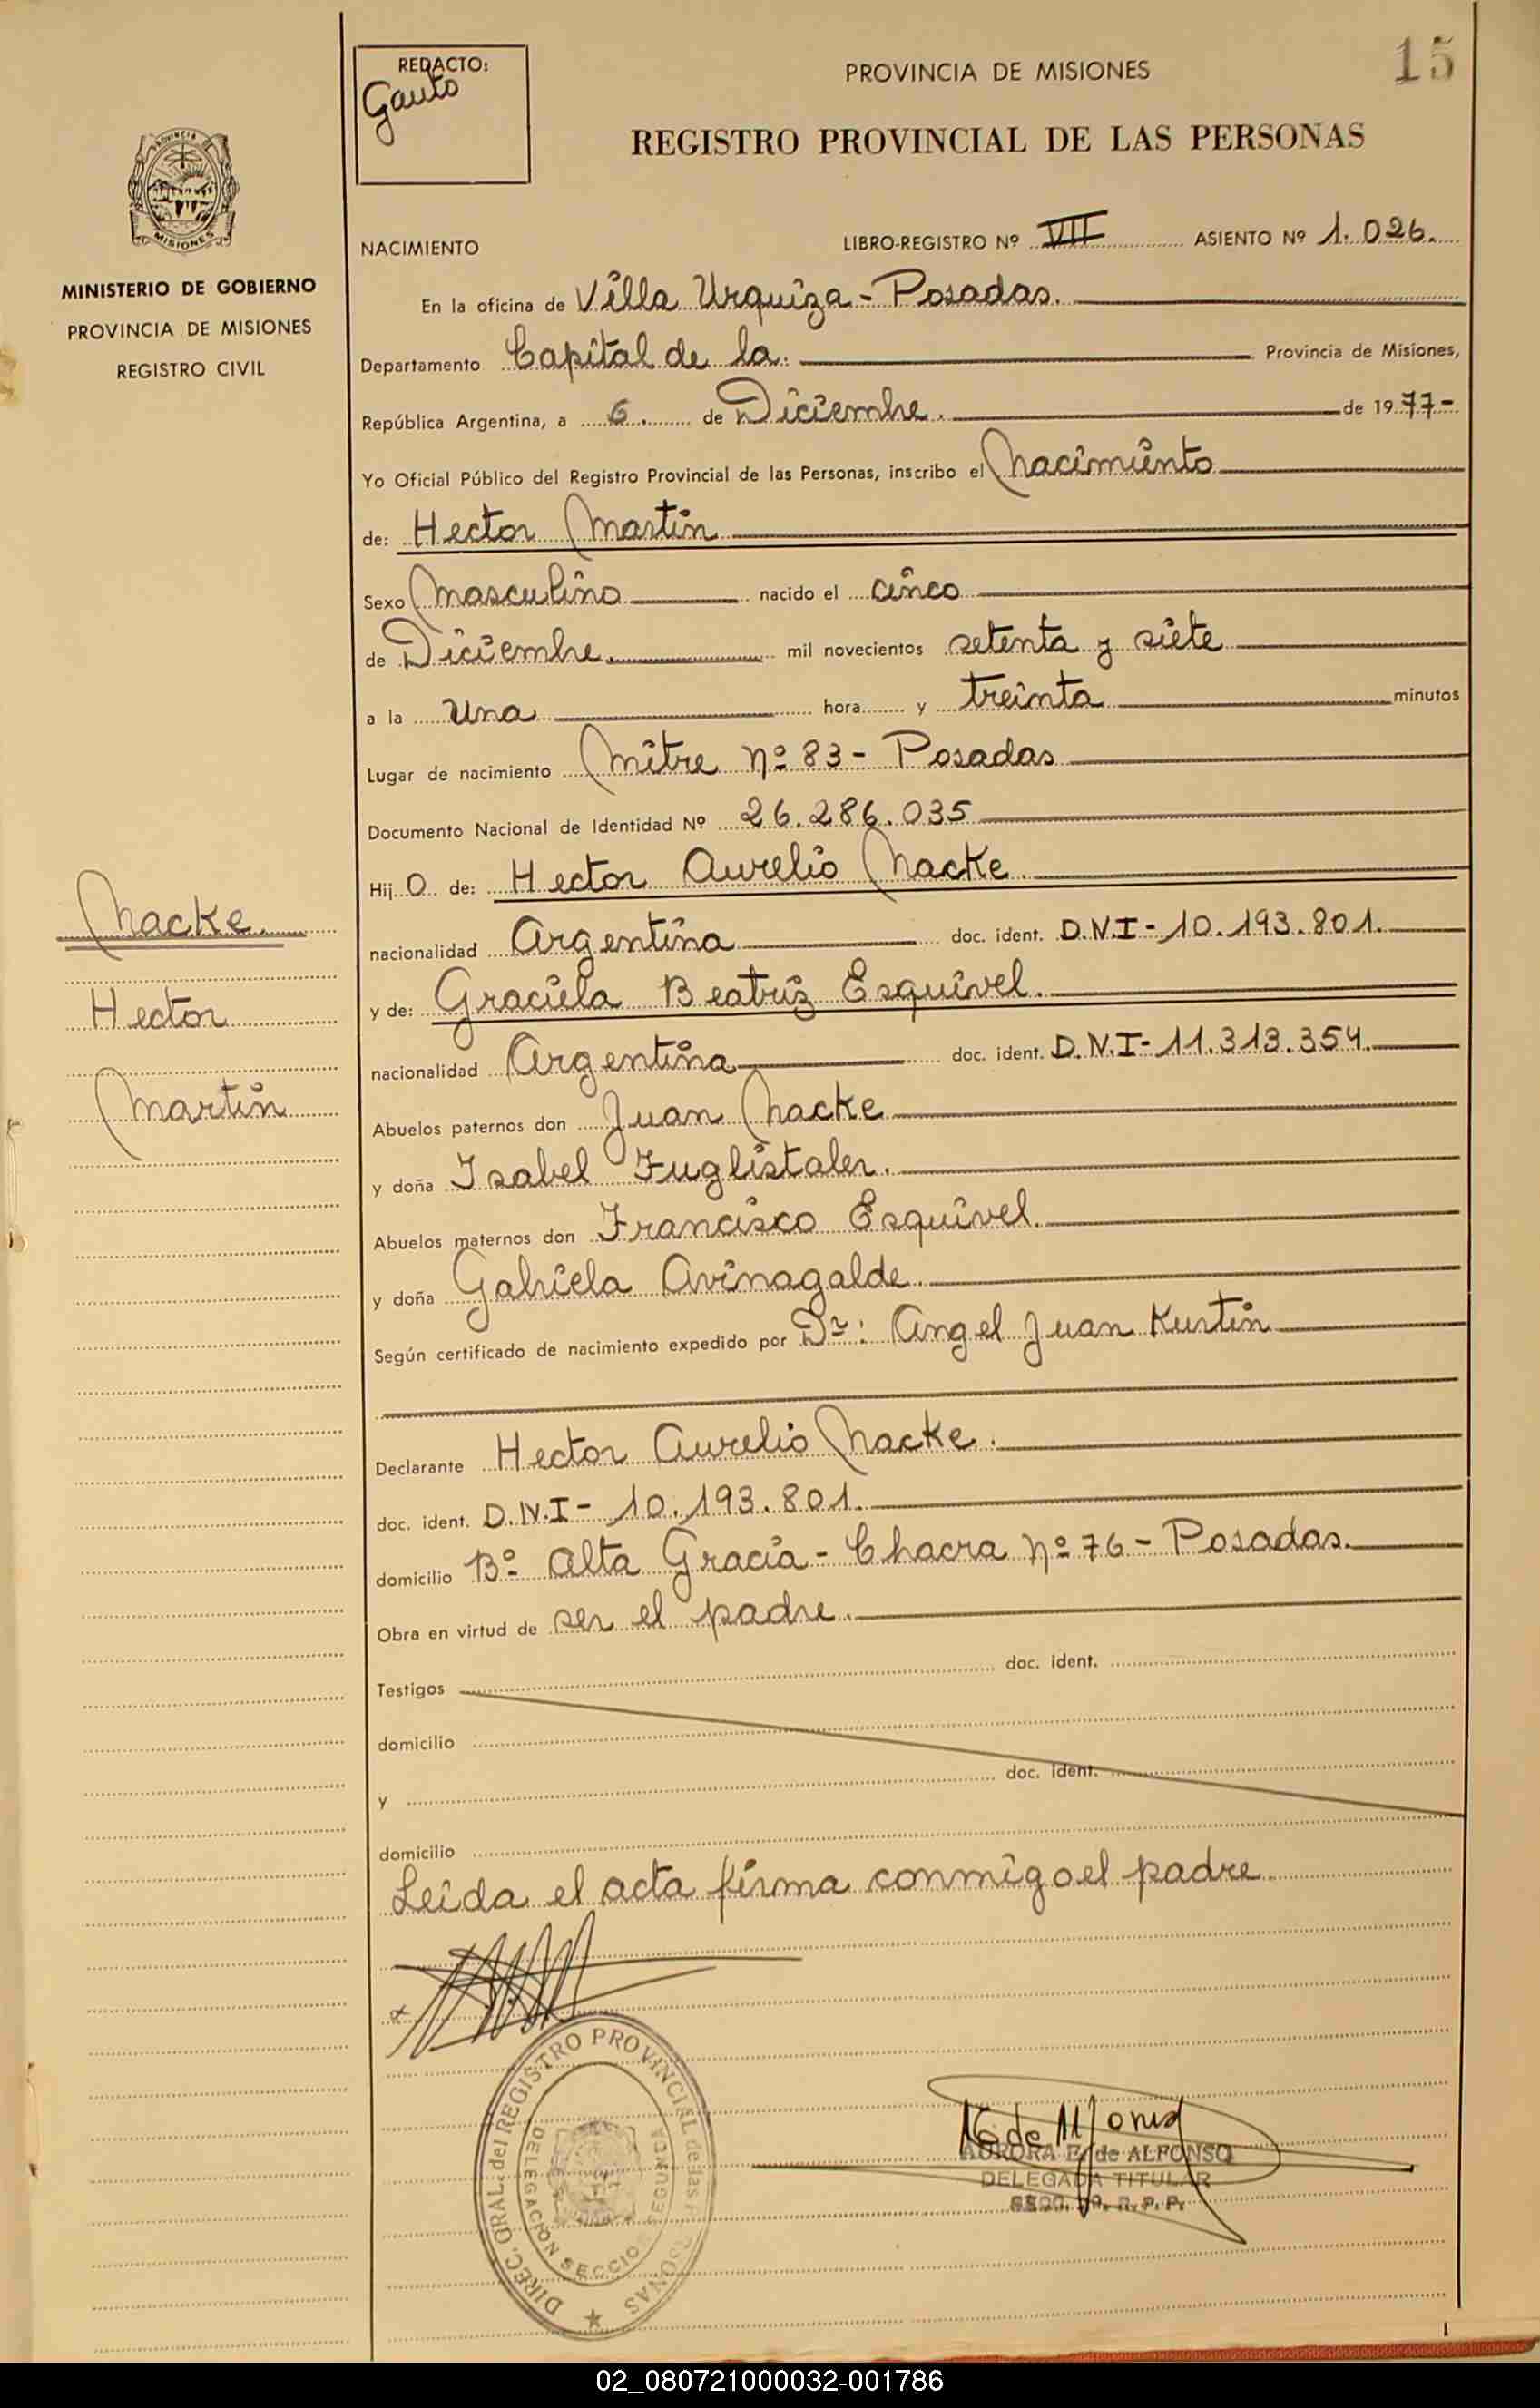 15
REDACTO:
Gauto
PROVINCIA DE MISIONES
REGISTRO PROVINCIAL DE LAS PERSONAS
PROVINCIA DE
MISIONES
MINISTERIO DE GOBIERNO
PROVINCIA DE MISIONES
REGISTRO CIVIL
NACIMIENTO LIBRO-REGISTRO Nº VII ASIENTO Nº 1.026.
En la oficina de Villa Urquiza - Posadas.
Departamento Capital de la. Provincia de Misiones,
República Argentina, a 6. de Diciembre. de 1977-
Yo Oficial Público del Registro Provincial de las Personas, inscribo el Nacimiento
de: Hector Martin
Sexo Masculino nacido el cinco
de Diciembre. mil novecientos setenta y siete
a la una hora y treinta minutos
Lugar de nacimiento Mitre Nº 83 - Posadas
Documento Nacional de Identidad Nº 26.286.035
Hijo de: Hector Aurelio Nacke.
nacionalidad Argentina doc. ident. D.N.I - 10.193.801.
y de: Graciela Beatriz Esquivel.
nacionalidad Argentina doc. ident. D.N.I - 11.313.354.
Abuelos paternos don Juan Nacke
y doña Isabel Fuglistaler.
Abuelos maternos don Francisco Esquivel.
y doña Gabriela Avinagalde.
Según certificado de nacimiento expedido por Dr: Angel Juan Kurtin
Declarante Hector Aurelio Nacke.
doc. ident. D.N.I - 10.193.801.
domicilio Bº Alta Gracia - Chacra Nº 76 - Posadas.
Obra en virtud de ser el padre.
Testigos doc. ident.
domicilio
y doc. ident.
domicilio
Leida el acta firma conmigo el padre
Nacke.
Hector
Martin
DIREC. GRAL. del REGISTRO PROVINCIAL de las PERSONAS
DELEGACION SECCION SEGUNDA
AURORA E. de ALFONSO
DELEGADA TITULAR
02_080721000032-001786